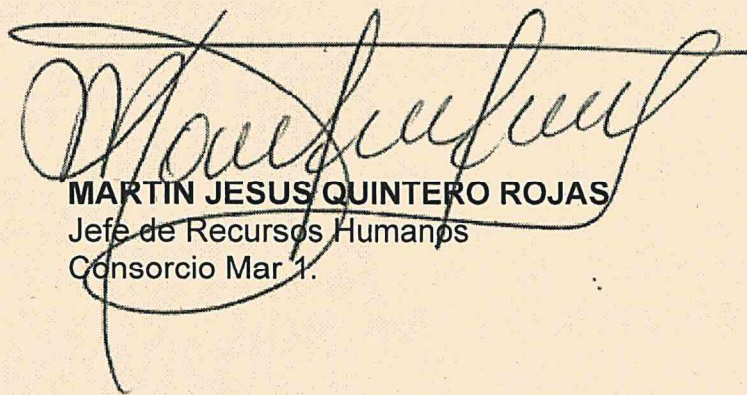 MARTIN JESUS QUINTERO ROJAS
Jefe de Recursos Humanos
Consorcio Mar 1.